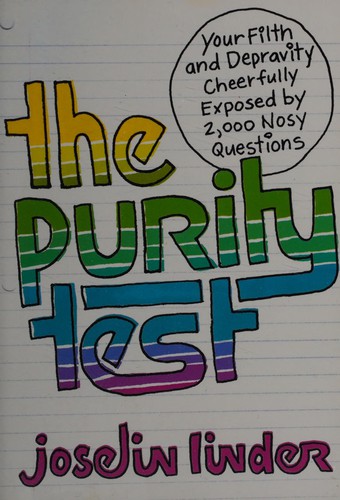 Your Filth
and Depravity
Cheerfully
Exposed by
2,000 Nosy
Questions
the
purity
test
joselin linder